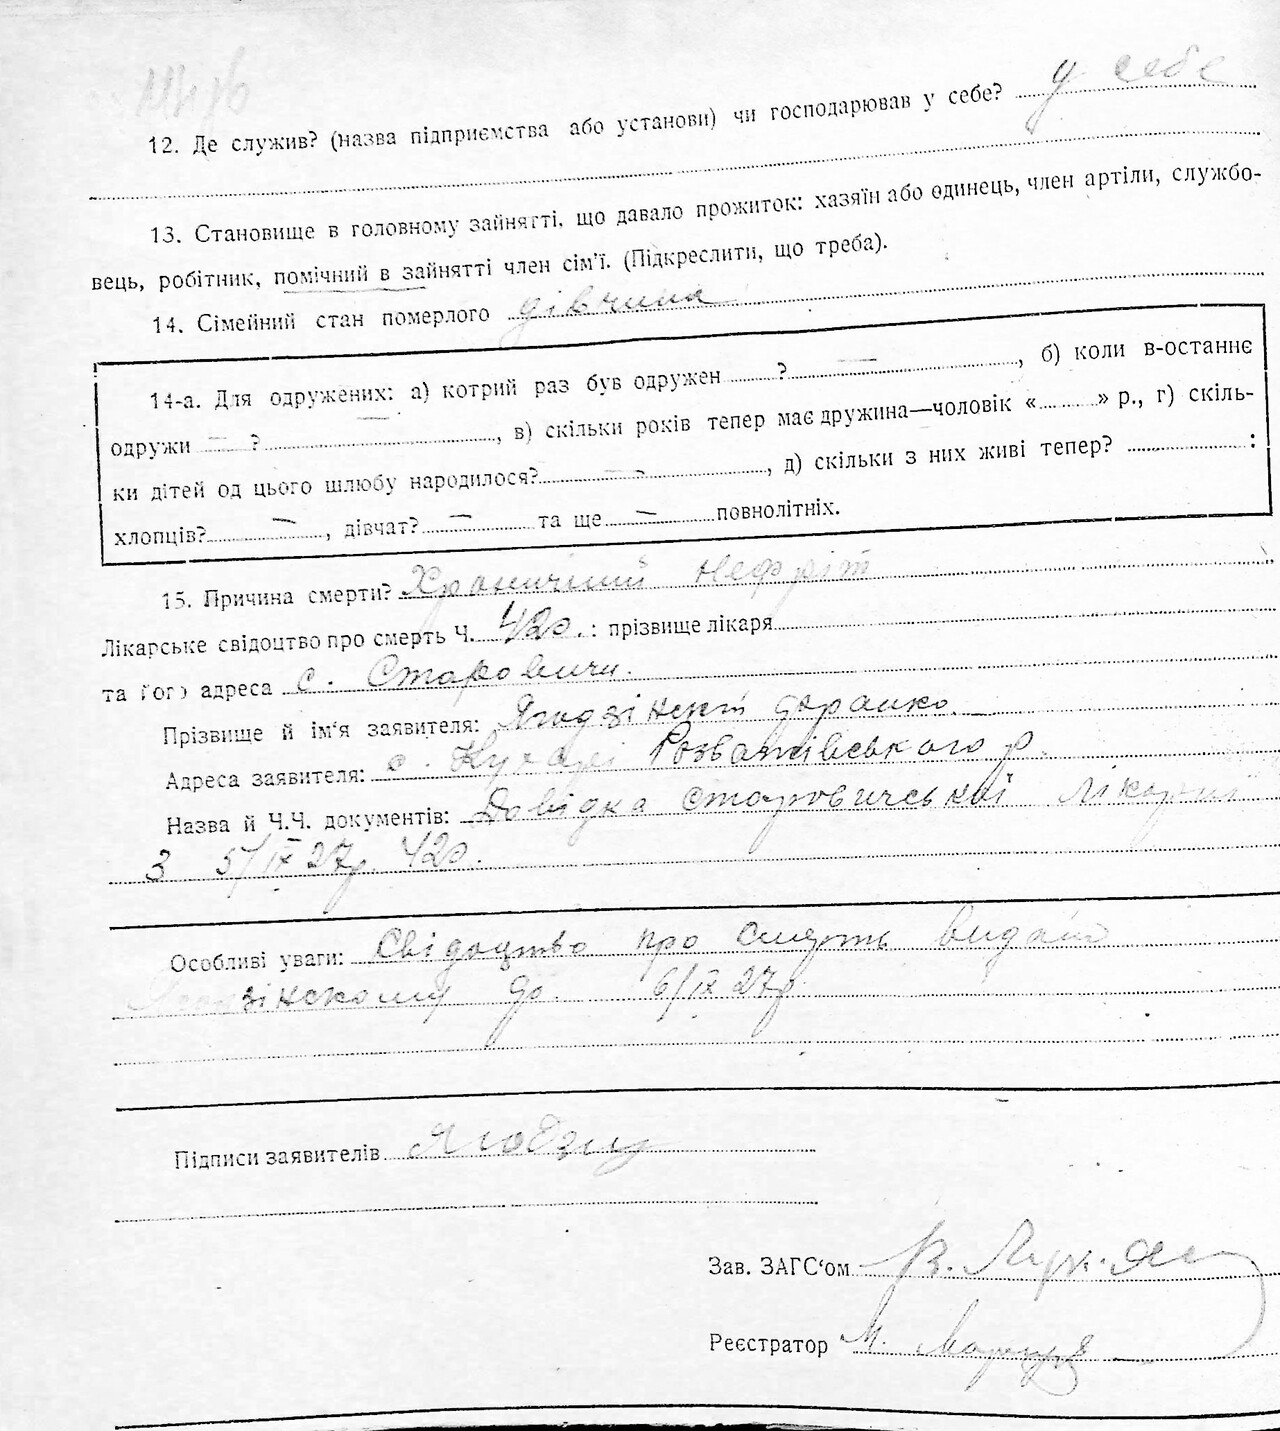 12. Де служив? (назва підприємства або установи) чи господарював у себе? у себе
13. Становище в головному зайнятті, що давало прожиток: хазяїн або одинець, член артіли, службо-
вець, робітник, помічний в зайнятті член сім'ї. (Підкреслити, що треба).
14. Сімейний стан померлого дівчина
14-а. Для одружених: а) котрий раз був одружен ? —, б) коли в-останнє
одружи — ? —, в) скільки років тепер має дружина—чоловік « » р., г) скіль-
ки дітей од цього шлюбу народилося? —, д) скільки з них живі тепер? :
хлопців? —, дівчат? — та ще — повнолітніх.
15. Причина смерти? Хронічний нефріт
Лікарське свідоцтво про смерть Ч. 420. : прізвище лікаря
та його адреса с. Старовичи.
Прізвище й ім'я заявителя: Ягодзінскій
Адреса заявителя: с. Кухарі Розважівського р.
Назва й Ч.Ч. документів: Довідка Старовичської лікарні
З 5/IX 27р. 420.
Особливі уваги: Свідоцтво про смерть видано
Ягодзінскому до 6/IX 27р.
Підписи заявителів
Зав. ЗАГС'ом
Реєстратор М.